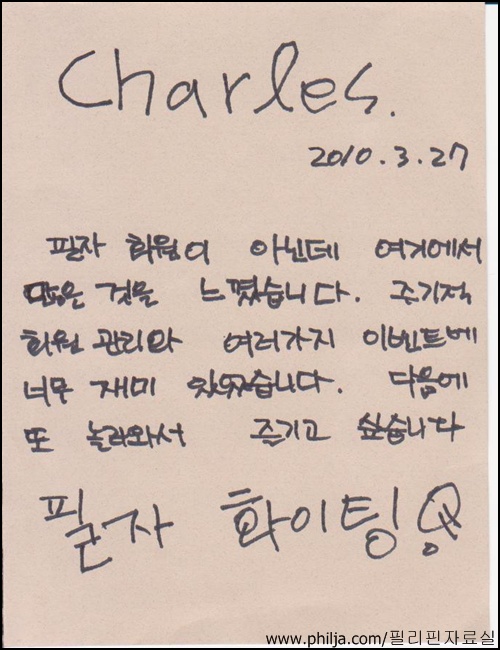 Charles.
2010.3.27
필자 회원이 아닌데 여기에서
많은 것을 느꼈습니다. 주기적
회원 관리와 여러가지 이벤트에
너무 재미 있었습니다. 다음에
또 놀러와서 즐기고 싶습니다
필자 화이팅!
www.philja.com/필리핀자료실